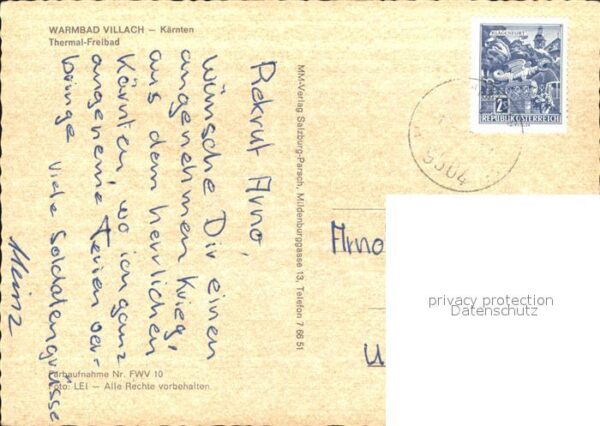 WARMBAD VILLACH – Kärnten
Thermal-Freibad
Rekrut Arno,
wünsche Dir einen
angenehmen Krieg,
aus dem herrlichen
Kärnten, wo ich ganz
angeneme Ferien ver-
bringe viele Soldatengrüsse
Heinz
Farbaufnahme Nr. FWV 10
Foto: LEI – Alle Rechte vorbehalten
MM-Verlag Salzburg-Parsch, Mildenburggasse 13, Telefon 7 66 51
KLAGENFURT
2S
REPUBLIK ÖSTERREICH
9504
Arno
U
privacy protection
Datenschutz